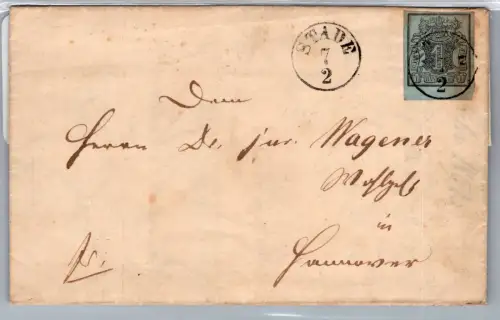 STADE
7
2
2
Dem
Herrn Dr. jur. Wagener
in
Hannover
fr.